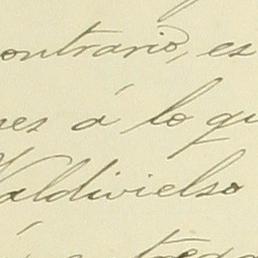 contrario, es
nes á lo qu
Valdivielso